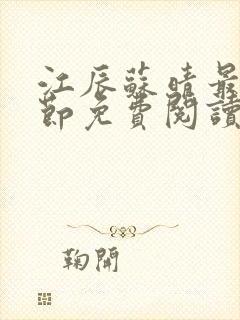 江辰蘇晴最
節免費閱讀
鞠開